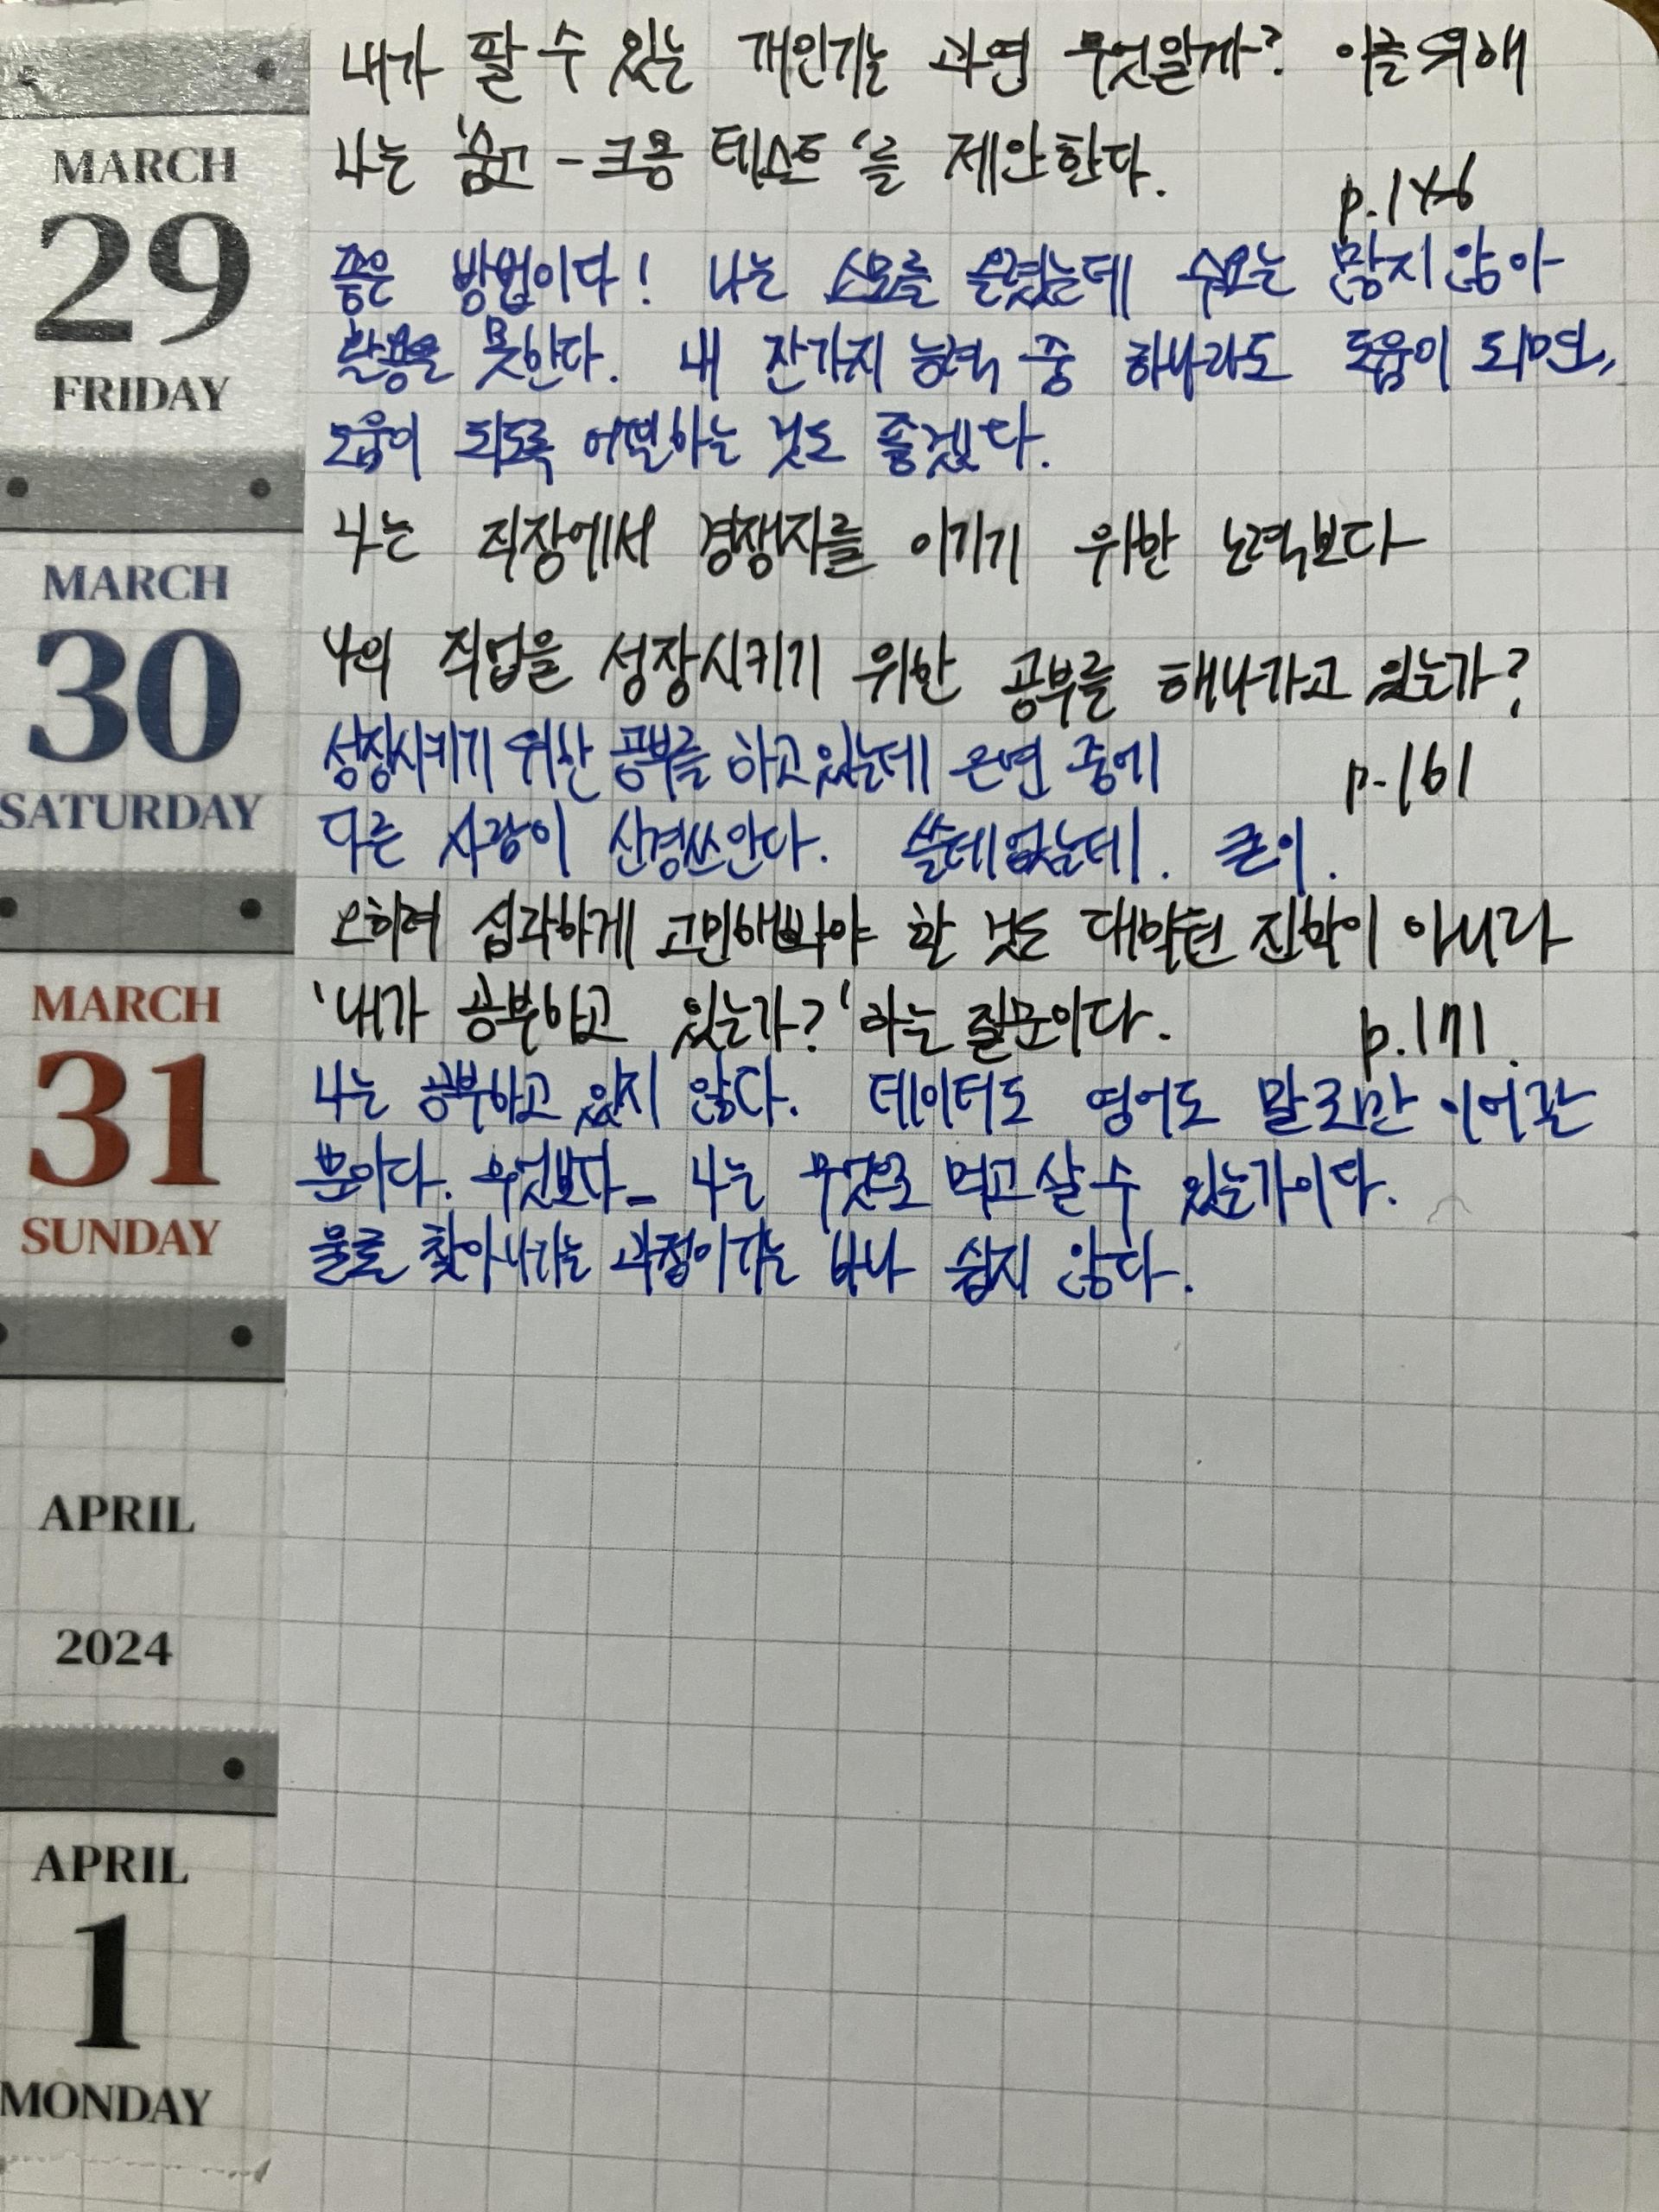 내가 팔 수 있는 개인기는 과연 무엇일까? 이를 위해
나는 '숨고-크몽 테스트'를 제안한다.
p.146
MARCH
29
FRIDAY
좋은 방법이다! 나는 소모를 올렸는데 수요는 많지 않아
활용을 못한다. 내 잔가지 능력 중 하나라도 도움이 되면,
도움이 되도록 어필하는 것도 좋겠다.
나는 직장에서 경쟁자를 이기기 위한 노력보다
MARCH
30
SATURDAY
나의 직업을 성장시키기 위한 공부를 해나가고 있는가?
성장시키기 위한 공부를 하고있는데 은연 중에
p.161
다른 사람이 신경쓰인다. 쓸데없는데. 큰이.
오히려 심각하게 고민해봐야 할 것은 대학원 진학이 아니라
MARCH
31
SUNDAY
'내가 공부하고 있는가?'하는 질문이다.
p.171.
나는 공부하고 있지 않다. 데이터도 영어도 말로만 이어갈
뿐이다. 무엇보다_ 나는 무엇으로 먹고 살 수 있는가이다.
찾아나가는 과정이기는 쉽지 않다.
APRIL
2024
APRIL
1
MONDAY